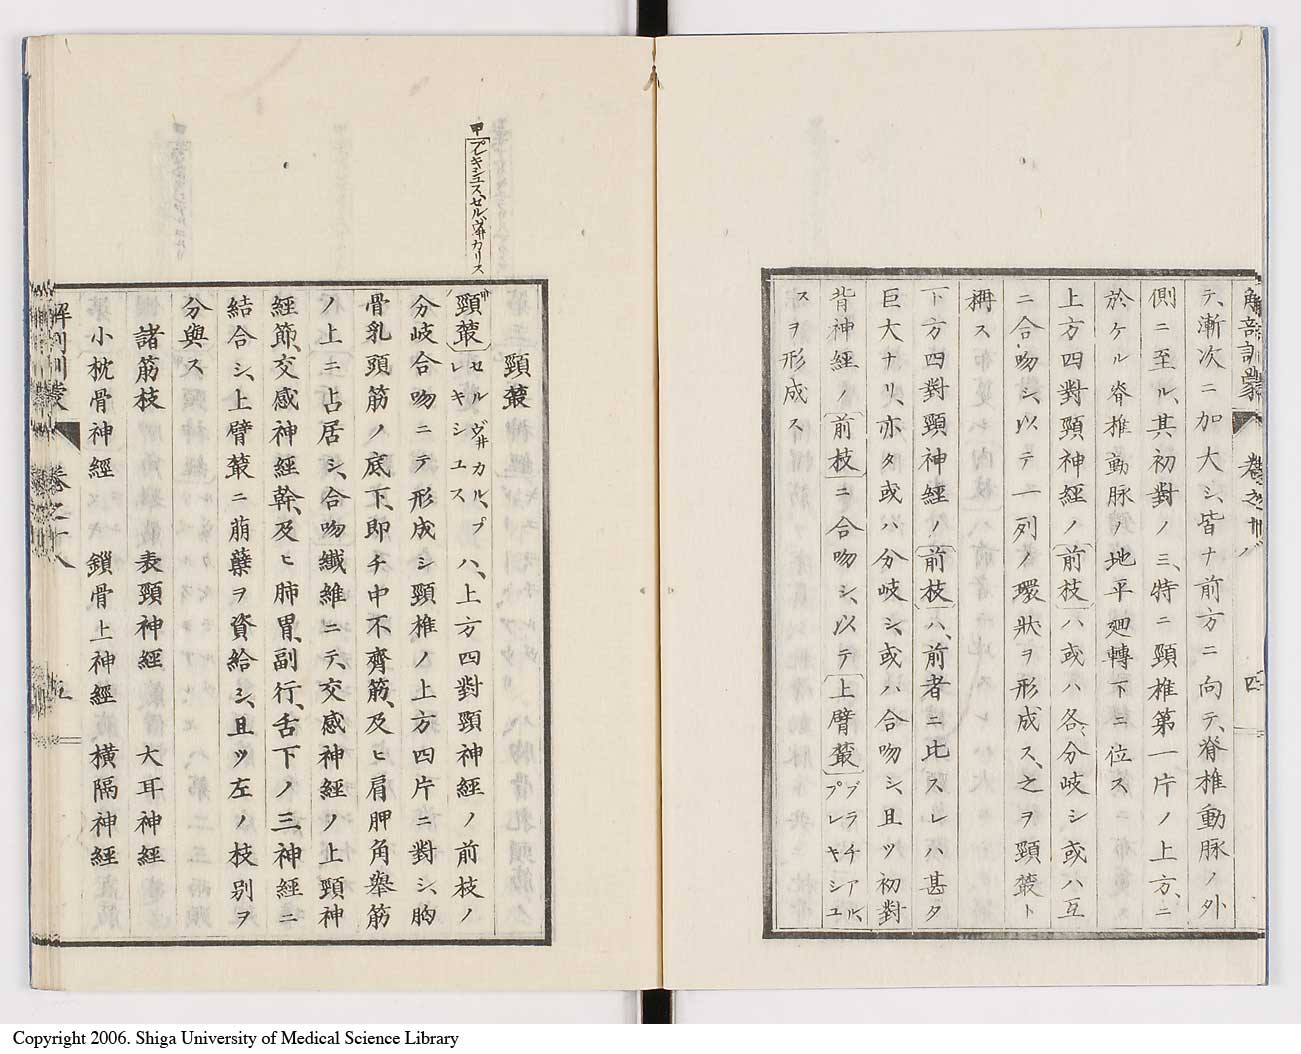 解剖訓蒙 卷之十八 四
テ、漸次ニ加大シ、皆ナ前方ニ向テ、脊椎動脉ノ外
側ニ至ル、其初對ノ三、特ニ頸椎第一片ノ上方、ニ
於ケル脊椎動脉ノ地平廻轉下ニ位ス
上方四對頸神經ノ前枝ハ或ハ各、分岐シ或ハ互
ニ合吻シ、以テ一列ノ環狀ヲ形成ス、之ヲ頸叢ト
稱ス
下方四對頸神經ノ前枝ハ、前者ニ比スレハ甚タ
巨大ナリ、亦タ或ハ分岐シ、或ハ合吻シ、且ツ初對
背神經ノ前枝ニ合吻シ、以テ上臂叢プラチアル、プレキシユ
スヲ形成ス
頸叢
甲プレキシユス、セルヴ井カリス
頸叢セルヴ井カル、プレキシユスハ、上方四對頸神經ノ前枝ノ
分岐合吻ニテ形成シ頸椎ノ上方四片ニ對シ、胸
骨乳頭筋ノ底下、即チ中不齊筋、及ヒ肩胛角擧筋
ノ上ニ占居シ、合吻纖維ニテ、交感神經ノ上頸神
經節、交感神經幹、及ヒ肺胃、副行、舌下ノ三神經ニ
結合シ、上臂叢ニ萠蘖ヲ資給シ、且ツ左ノ枝别ヲ
分與ス
諸筋枝 表頸神經 大耳神經
小枕骨神經 鎖骨上神經 横隔神經
解剖訓蒙 卷之十八 五
Copyright 2006. Shiga University of Medical Science Library